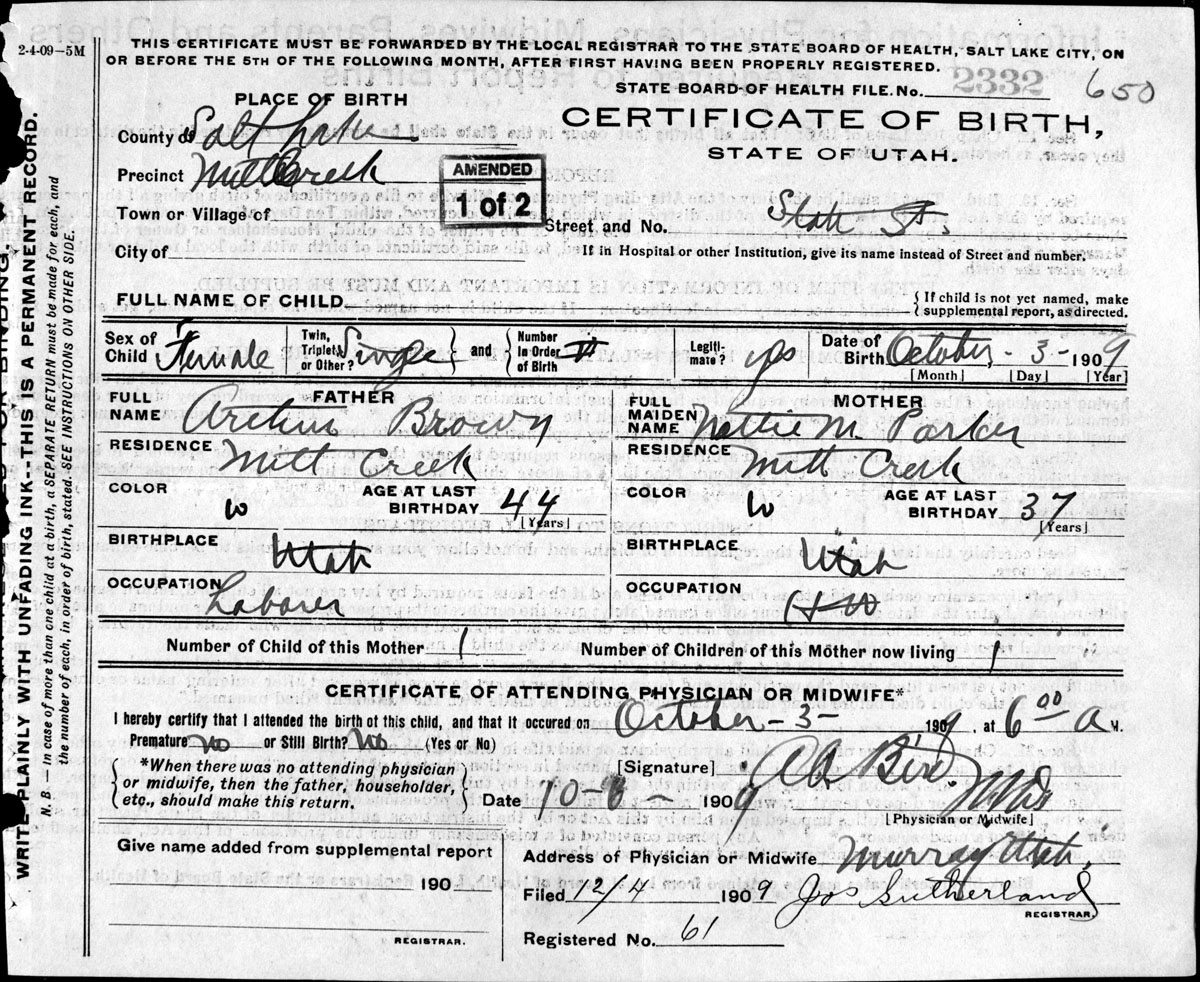 2-4-09—5M
THIS CERTIFICATE MUST BE FORWARDED BY THE LOCAL REGISTRAR TO THE STATE BOARD OF HEALTH, SALT LAKE CITY, ON
OR BEFORE THE 5TH OF THE FOLLOWING MONTH, AFTER FIRST HAVING BEEN PROPERLY REGISTERED.
STATE BOARD OF HEALTH FILE No. 2332 650
PLACE OF BIRTH
CERTIFICATE OF BIRTH,
STATE OF UTAH.
County of Salt Lake
Precinct Mill Creek
AMENDED
1 of 2
Town or Village of
Street and No. State St.
City of
If in Hospital or other Institution, give its name instead of Street and number.
FULL NAME OF CHILD
{ If child is not yet named, make
supplemental report, as directed.
Sex of Child Female
Twin, Triplet, or Other? Single } and { Number In Order of Birth
Legiti-mate? yes
Date of Birth October - 3 - 1909
[Month] [Day] [Year]
FATHER
FULL NAME Brown
MOTHER
FULL MAIDEN NAME Nettie M. Parker
RESIDENCE Mill Creek
RESIDENCE Mill Creek
COLOR W
AGE AT LAST BIRTHDAY 44
[Years]
COLOR W
AGE AT LAST BIRTHDAY 37
[Years]
BIRTHPLACE Utah
BIRTHPLACE Utah
OCCUPATION Laborer
OCCUPATION HW
Number of Child of this Mother 1
Number of Children of this Mother now living 1
CERTIFICATE OF ATTENDING PHYSICIAN OR MIDWIFE*
I hereby certify that I attended the birth of this child, and that it occured on October - 3 - 1909, at 6 00 a M.
Premature no or Still Birth? No (Yes or No)
*When there was no attending physician
or midwife, then the father, householder,
etc., should make this return.
[Signature] Bird
[Physician or Midwife]
Date 10-8- 1909
Give name added from supplemental report
190
REGISTRAR.
Address of Physician or Midwife Murray Utah
Filed 12/4 1909 Jos Sutherland
REGISTRAR.
Registered No. 61
WRITE PLAINLY WITH UNFADING INK--THIS IS A PERMANENT RECORD.
N. B.—In case of more than one child at a birth, a SEPARATE RETURN must be made for each, and
the number of each, in order of birth, stated. SEE INSTRUCTIONS ON OTHER SIDE.